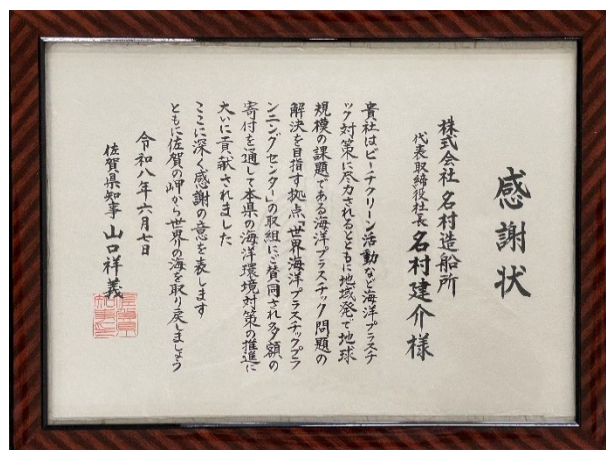 感謝状
株式会社 名村造船所
代表取締役社長 名村建介様
貴社はビーチクリーン活動など海洋プラスチ
ック対策に尽力されるとともに地域発で地球
規模の課題である海洋プラスチック問題の
解決を目指す拠点「世界海洋プラスチックプラ
ンニングセンター」の取組にご賛同され多額の
寄付を通して本県の海洋環境対策の推進に
大いに貢献されました
ここに深く感謝の意を表します
ともに佐賀の岬から世界の海を取り戻しましょう
令和八年六月七日
佐賀県知事 山口祥義